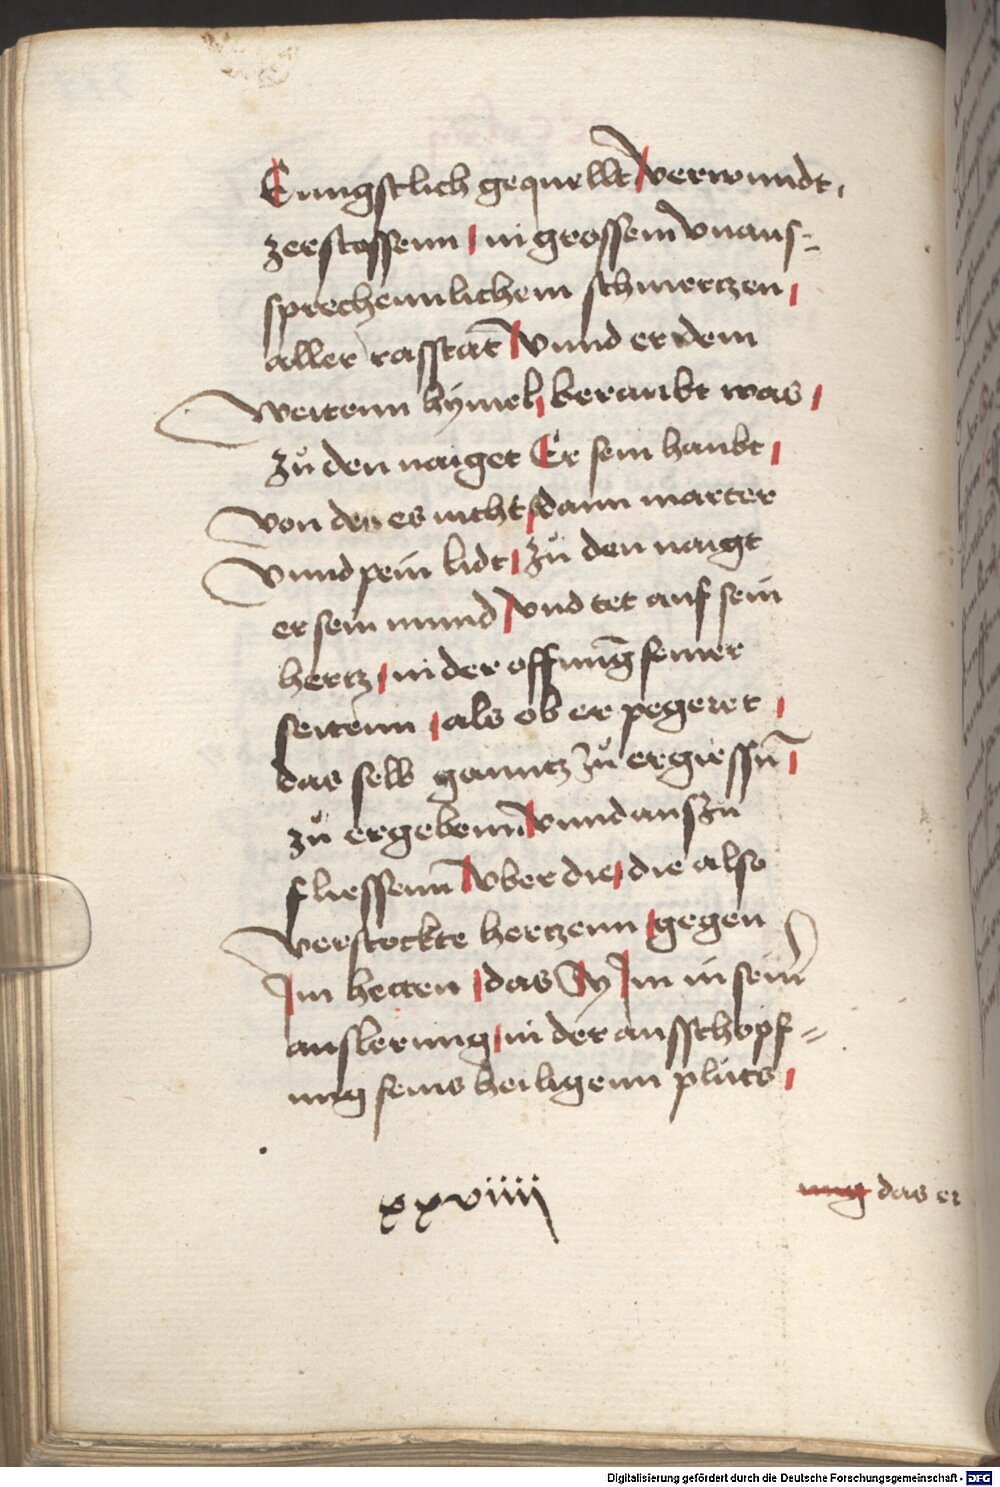 Enngstlich gequellt verwundt
zerstossenn in grossem vnaus-
sprechennlichem schmertzen
aller rasstat vnnd er dem
weitenn hymel beraubt was
zů den naiget Er sein haubt
von den es nicht dann marter
vnnd pein lidt zů den naigt
er sein mund vnd tet auf sein
hertz in der offnūg seiner
seitenn als ob er pegeret
das selb ganntz zů ergiessn̄
zů ergebenn vnnd auszu
fliessenn̄ vber die die also
verstockte hertzenn gegen
Im hetten das Sy Im in seiner
auslerung in der ausschopf=
ung seins heiligenn pluts
xxviiij
ung das er
Digitalisierung gefördert durch die Deutsche Forschungsgemeinschaft - DFG